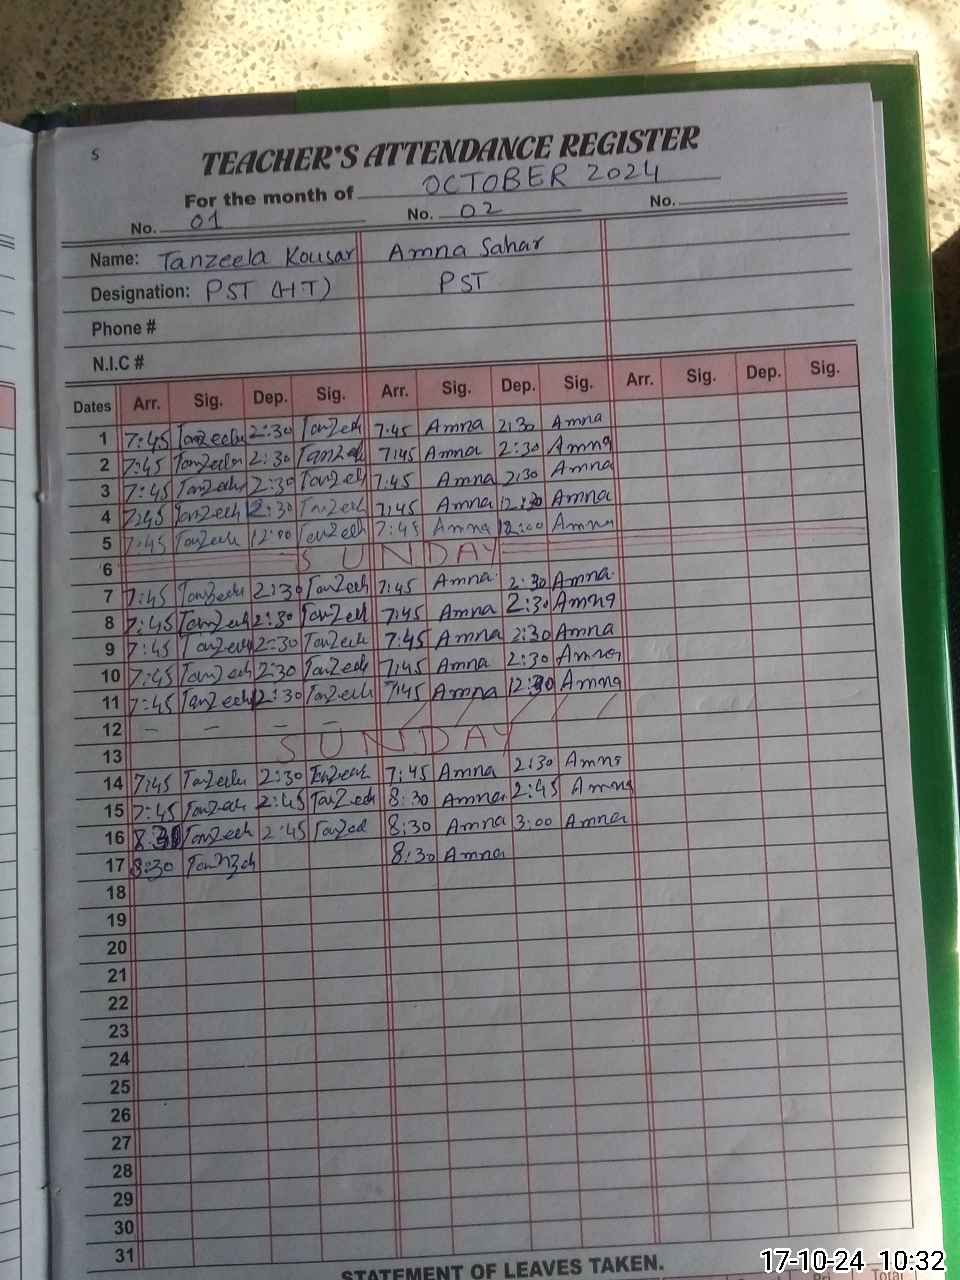 5
TEACHER'S ATTENDANCE REGISTER
For the month of OCTOBER 2024
No. 01 No. 02 No.
Name: Tanzeela Kousar Amna Sahar
Designation: PST (HT) PST
Phone #
N.I.C #
Dates Arr. Sig. Dep. Sig. Arr. Sig. Dep. Sig. Arr. Sig. Dep. Sig.
1 7:45 TanZeela 2:30 TanZeela 7:45 Amna 2:30 Amna
2 7:45 TanZeela 2:30 TanZeela 7:45 Amna 2:30 Amna
3 7:45 TanZeela 2:30 TanZeela 7:45 Amna 2:30 Amna
4 7:45 TanZeela 12:30 TanZeela 7:45 Amna 12:30 Amna
5 7:45 TanZeela 12:00 TanZeela 7:45 Amna 12:00 Amna
6 SUNDAY
7 7:45 TanZeela 2:30 TanZeela 7:45 Amna 2:30 Amna
8 7:45 TanZeela 2:30 TanZeela 7:45 Amna 2:30 Amna
9 7:45 TanZeela 2:30 TanZeela 7:45 Amna 2:30 Amna
10 7:45 TanZeela 2:30 TanZeela 7:45 Amna 2:30 Amna
11 7:45 TanZeela 12:30 TanZeela 7:45 Amna 12:30 Amna
12 - - - -
13 SUNDAY
14 7:45 TanZeela 2:30 TanZeela 7:45 Amna 2:30 Amna
15 7:45 TanZeela 2:45 TanZeela 8:30 Amna 2:45 Amna
16 8:30 TanZeela 2:45 TanZeela 8:30 Amna 3:00 Amna
17 8:30 TanZeela 8:30 Amna
18
19
20
21
22
23
24
25
26
27
28
29
30
31
STATEMENT OF LEAVES TAKEN.
Total
17-10-24 10:32